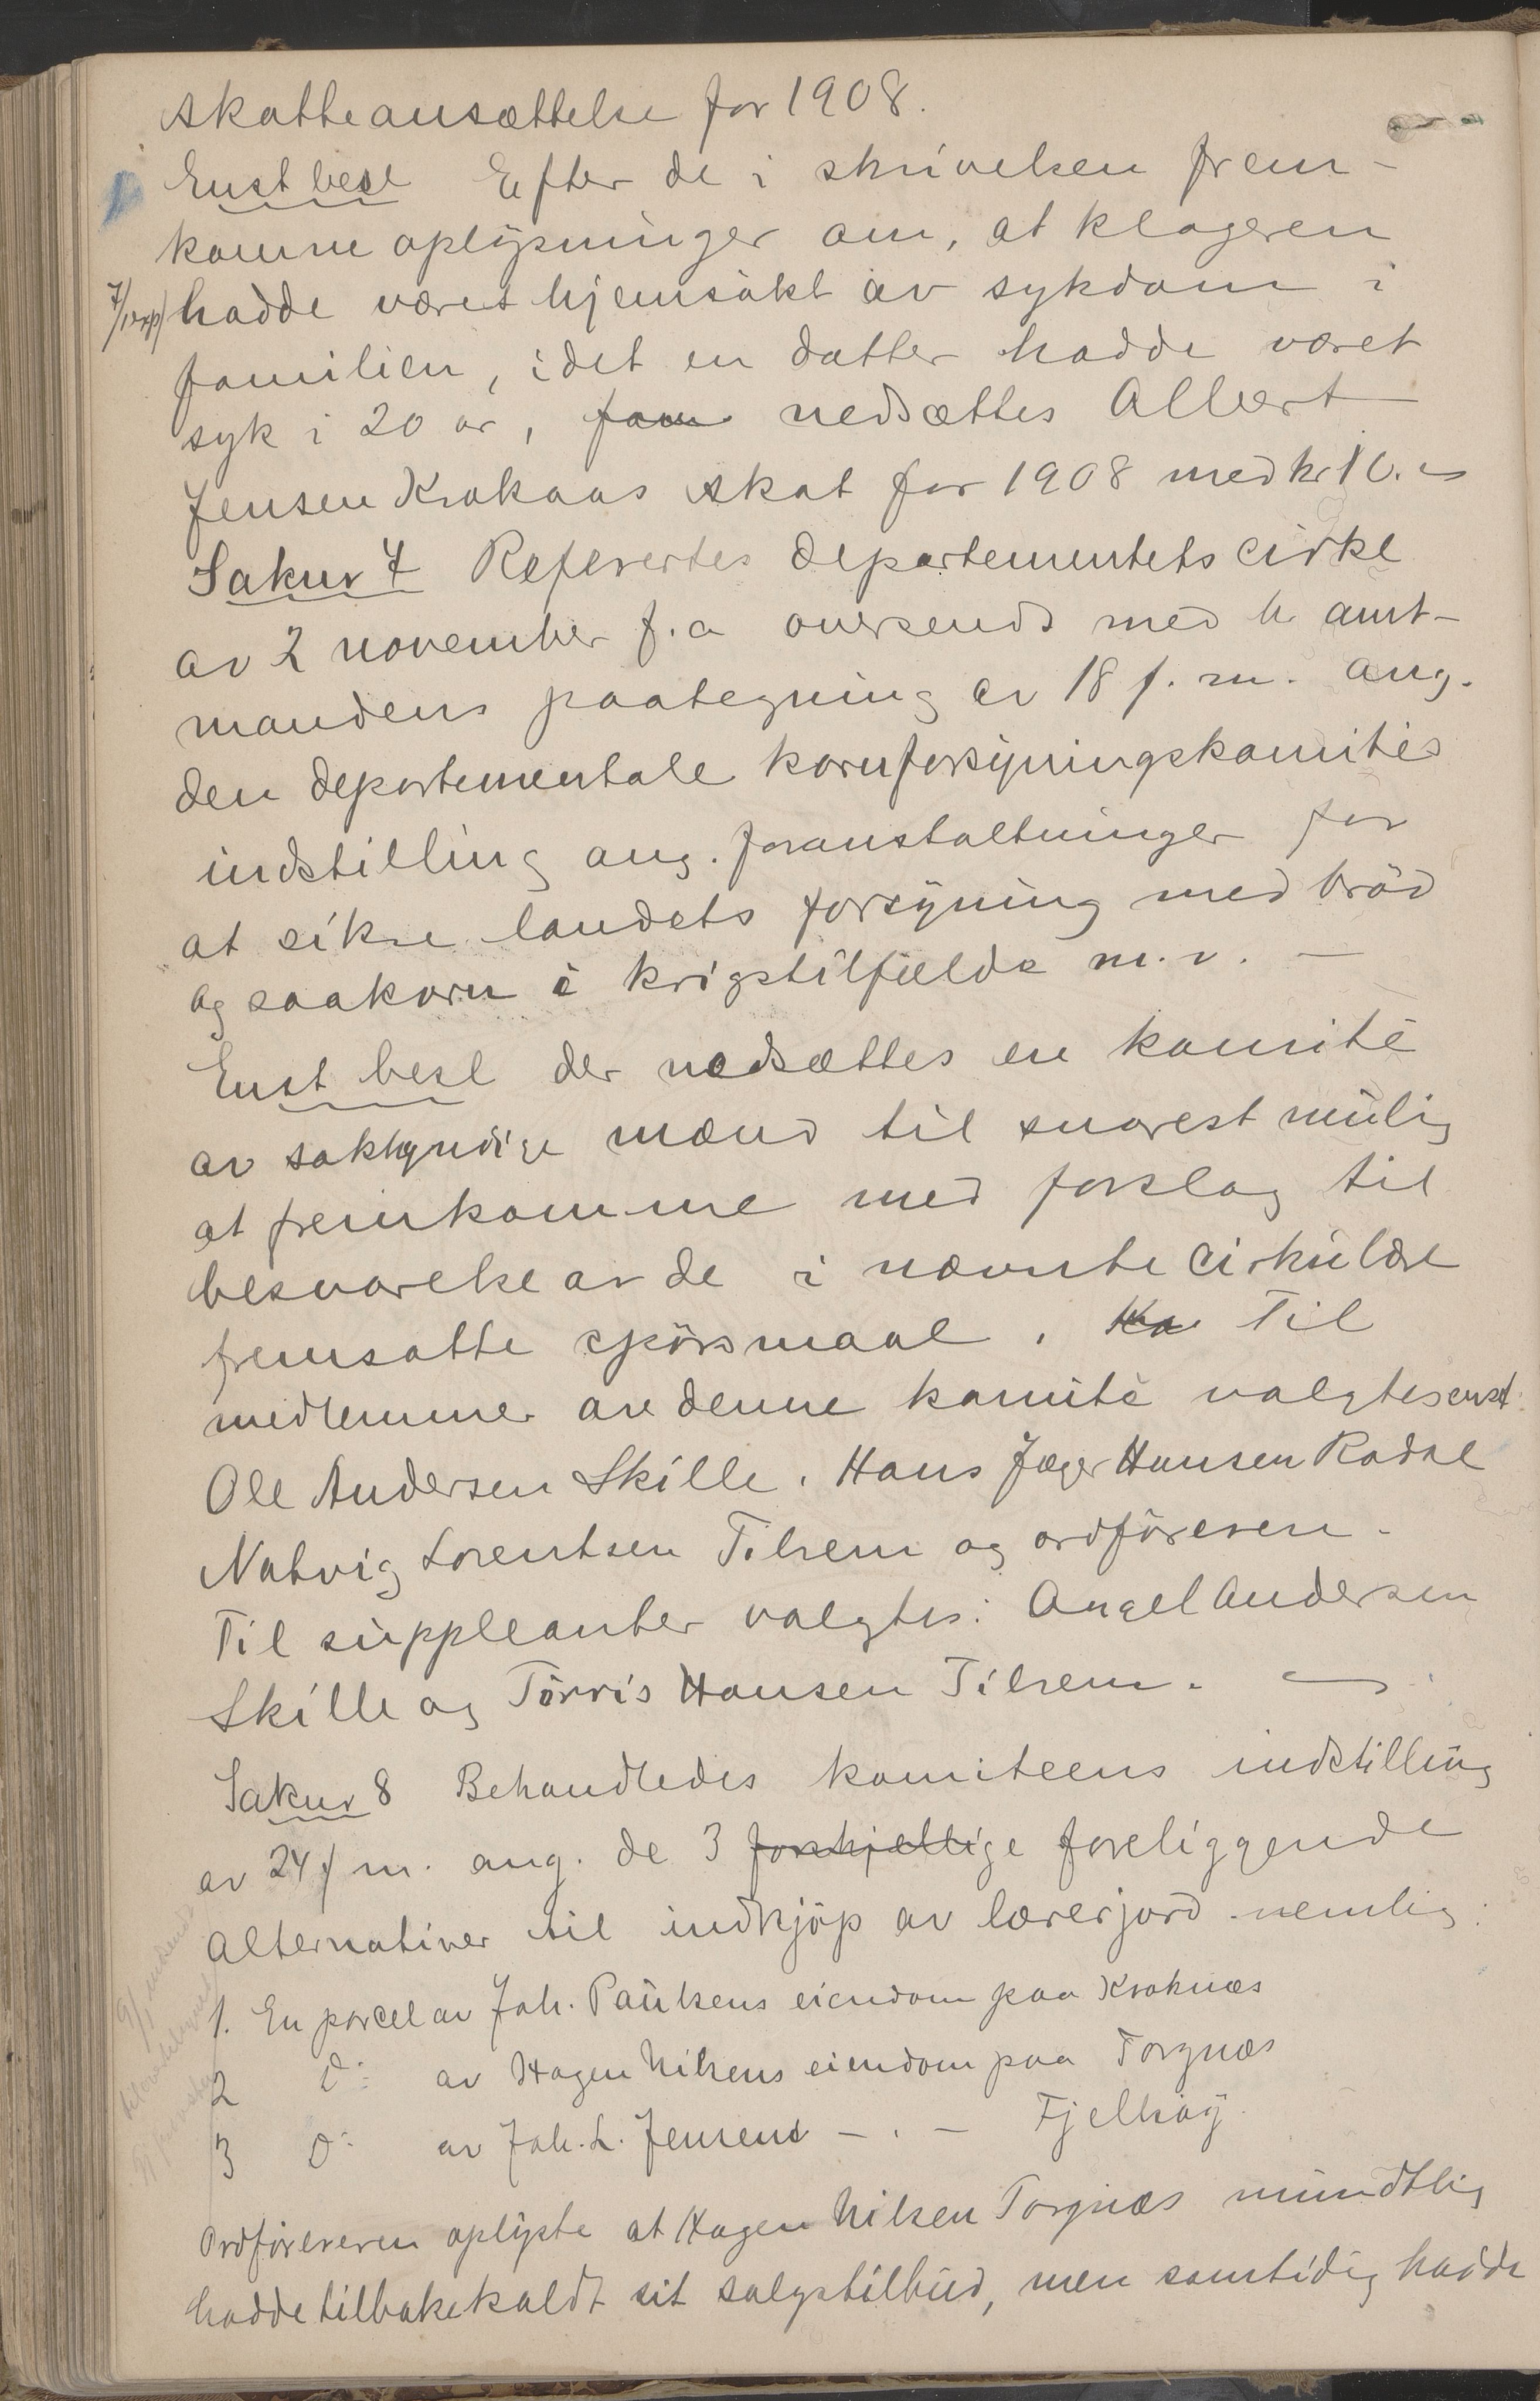 skatteansættelse for 1908.
Enst besl Efter de i skrivelsen frem-
komne oplysninger om, at klageren
hadde været hjemsøkt av sykdom i
familien, idet en datter hadde været
syk i 20 år, nedsættes Albert
Jensen Krokaas skat for 1908 med kr 10.
Saknr 7 Refertes departementets cirkl
av 2 november f.a oversendt med h. amt-
mandens paategning av 18 f. m. ang.
den departementale kornforsyningskomités
indstilling ang. foranstaltninger for
at sikre landets forsyning med brød
og saakorn i krigstilfælde m.v. —
Enst besl der nedsættes en komité
av sakkyndige mænd til snarest mulig
at fremkomme med forslag til
besvarelse av de i nævnte cirkulære
fremsatte spørsmaal. Til
medlemmer av denne komité valgtes enst.
Ole Andersen Skille. Hans Jæger Hansen Rødal
Natvig Lorentsen Tilrem og ordføreren.
Til suppleanter valgtes: Angel Andersen
Skille og Tørris Hansen Tilrem. —
Saknr 8 Behandledes komiteens indstilling
av 24 f m. ang. de 3 forskjellige foreliggende
alternativer til indkjøp av lærerjord nemlig:
1. En parcel av Joh. Paulsens eiendom paa Kroknæs
2 Do: av Hagen Nilsens eiendom paa Torgnæs
3 Do: av Joh. L. Jensens — . — Fjelhøy.
Ordføreren oplyste at Hagen Nilsen Torgnæs mundtlig
hadde tilbakekaldt sit salgstilbud, men samtidig hadde